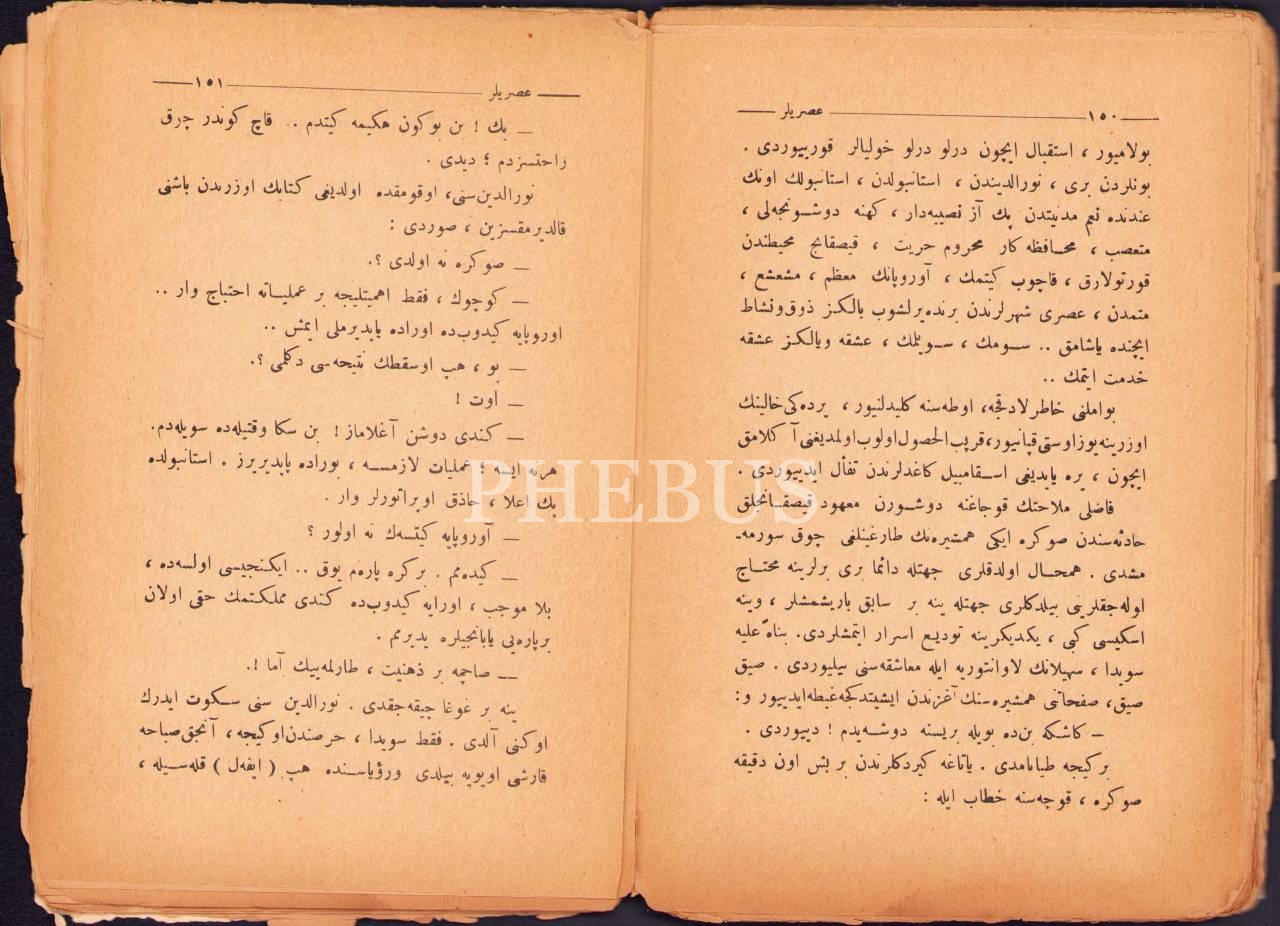 ١٥٠ عصریلر
بولامیور ، استقبال ایچون درلو درلو خولیالر قوریبوردی .
بونلردن بری ، نورالدیندن ، استانبولدن ، استانبولك اونك
عندنده نعم مدنیتدن پك آز نصیبه‌دار ، کهنه دوشونجه‌لی ،
متعصب ، محافظه‌کار محروم حریت ، قیصقانج محیطندن
قورتولارق ، قاچوب کیتمك ، آوروپانك معظم ، مشعشع ،
متمدن ، عصری شهرلرندن برنده‌یرلشوب یالکز ذوق‌ونشاط
ایچنده یاشامق .. سومك ، سویلمك ، عشقه ویالکز عشقه
خدمت ایتمك ..
بواملنی خاطرلادقجه، اوطه‌سنه کلیدلنیور ، یرده‌کی‌خالینك
اوزرینه‌یوزاوستی‌قپانیور،قریب‌الحصول‌اولوب‌اولمدیغنی‌آ کلامق
ایچون ، یره یایدیغی اسقامبیل کاغدلرندن تفأل ایدیبوردی .
فاضلی ملاحتك قوجاغنه دوشورن معهود قیصقانجلق
حادثه‌سندن صوکره ایکی همشیره‌نك طارغینلغی چوق سورمه‌ـ
مشدی . همحال اولدقلری جهتله دائما بری برلرینه محتاج
اوله‌جقلرینی بیلدکلری جهتله ینه بر سابق باریشمشلر ، وینه
اسکیسی کبی ، یکدیکرینه تودیع اسرار ایتمشلردی. بناءً علیه
سویدا ، سهیلانك لاوانتوریه ایله معاشقه‌سنی بیلیوردی . صیق
صیق، صفحاتنی همشیره‌سنك آغزندن ایشیتدکجه‌غبطه‌ایدیبور و:
– کاشکه بن‌ده بویله بریسنه دوشه‌یدم ! دیبوردی .
برکیجه طیانامدی . یاتاغه کیردکلرندن بر بش اون دقیقه
صوکره ، قوجه‌سنه خطاب ایله :
عصریلر ١٥١
— بك ! بن بوکون هکیمه کیتدم .. قاچ کوندر چرق
راحتسزدم ؛ دیدی .
نورالدین‌سنی، اوقومقده اولدیغی کتابك اوزرندن باشنی
قالدیرمقسزین ، صوردی :
— صوکره نه اولدی ؟.
— کوچوك ، فقط اهمیتلیجه بر عملیاته احتیاج وار ..
اوروپایه کیدوب‌ده اوراده یاپدیرملی ایمش ..
— بو ، هپ اوسقطك نتیجه‌سی دکلمی ؟.
— اوت !
— کندی دوشن آغلاماز ! بن سکا وقتیله‌ده سویله‌دم.
هرنه ایسه ؛ عملیات لازمسه ، بوراده یاپدیریرز . استانبولده
پك اعلا ، حاذق اوپراتورلر وار .
— آوروپایه کیتسه‌ك نه اولور ؟
— کیده‌مم . برکره پاره‌م یوق .. ایکنجیسی اولسه‌ده ،
بلا موجب ، اورایه کیدوب‌ده کندی مملکتمك حقی اولان
برپاره‌یی یابانجیلره یدیرمم .
— صاچمه بر ذهنیت ، طارلمه‌ییك آما !.
ینه بر غوغا چیقه‌جقدی . نورالدین سنی سکوت ایدرك
اوکنی آلدی . فقط سویدا ، حرصندن‌اوکیجه ، آنجق‌صباحه
قارشی اویویه بیلدی ورؤیاسنده هپ ( ایفه‌ل ) قله‌سیله ،
PHEBUS